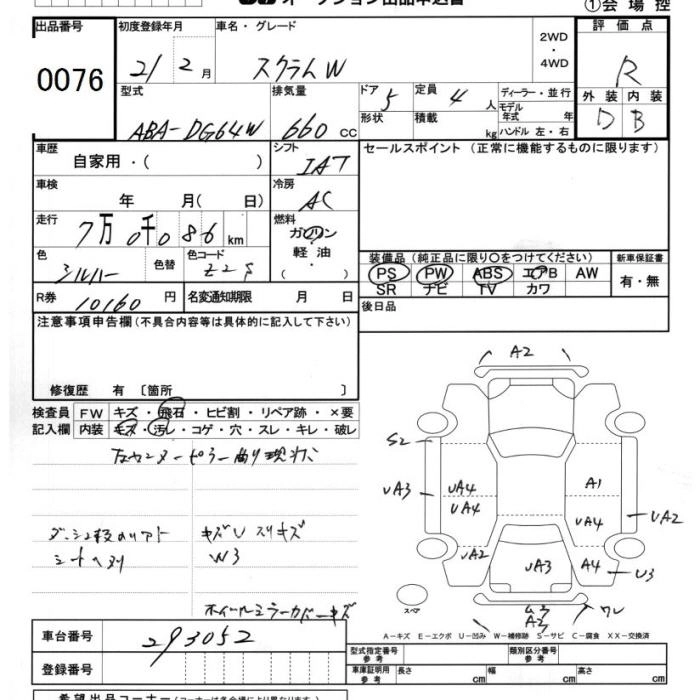 オークション出品申込書
①会場控
出品番号 初度登録年月 車名・グレード 2WD・4WD 評価点
0076 21年2月 スクラムW R
型式 排気量 ドア 5 定員 4人 ディーラー・並行 外装 内装
ABA-DG64W 660cc 形状 積載 kg モデル年式 年 ハンドル 左・右 D B
車歴 自家用・( ) シフト IAT セールスポイント (正常に機能するものに限ります)
車検 年 月(日) 冷房 AC
走行 7万0千086km 燃料 ガソリン・軽油・( )
色 シルバー 色替 色コード Z2S 装備品 (純正品に限り○をつけてください) 新車保証書
PS PW ABS エアB AW 有・無
SR ナビ TV カワ
R券 10160円 名変通知期限 月 日 後日品
注意事項申告欄(不具合内容等は具体的に記入して下さい)
修復歴 有 〔箇所 〕
検査員 FW キズ・飛石・ヒビ割・リペア跡・×要
記入欄 内装 モズ・汚レ・コゲ・穴・スレ・キレ・破レ
A2
S2
UA3 UA4 A1
UA4 UA4 UA2
キズU スリキズ
シート W3
UA2 UA3 A4 U3
ホイールミラーカバーキズ
スペア
A3
A-キズ E-エクボ U-凹み W-補修跡 S-サビ C-腐食 XX-交換済
車台番号 293052 型式指定番号 参考 類別区分番号 参考
登録番号 車庫証明用 参考 長さ cm 幅 cm 高さ cm
希望出品コーナー